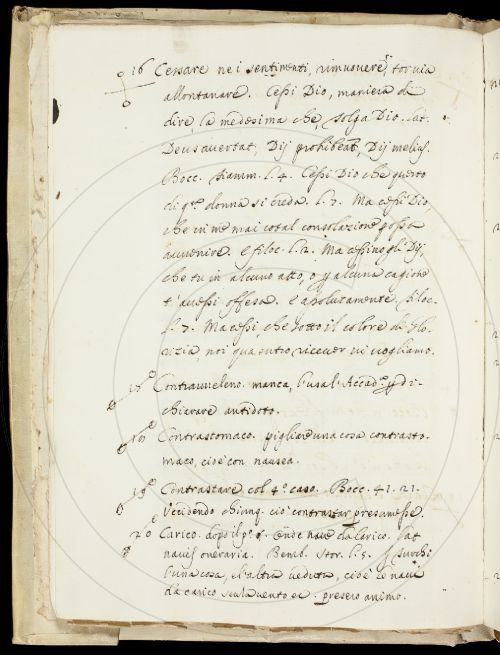 16 Cessare ne i sentimenti, rimuovere, tor via
allontanare. Cessi Dio, maniera di
dire, la medesima che, tolga Dio. Lat.
Deus avertat, Dij prohibeat, Dij melius.
Bocc. fiamm. l. 4. Cessi Dio che questo
di q.ta donna si creda. l. 7. Ma cessi Dio
che in me mai cotal consolazione possa
avvenire. e filoc. l. 2. Ma cessino gli Dij,
che tu in alcuno atto, o p alcuna cagione
t'avessi offesa. e asolutamente. filoc.
l. 7. Ma cessi, che sotto il colore di
noi qua entro ricever vi vogliamo.
17 Contravveleno. manca, l'usa l'Accad.a p di-
chiarare antidoto.
18 Contrastomaco. pigliare una cosa contrasto-
maco, cioè con nausea.
19 Contrastare col 4.o caso. Bocc. 41. 21.
Uccidendo chiunq. ciò contrastar presumesse.
20 Carico. onde nave da carico. Lat
navis oneraria. Bemb. Stor. l. 5.
l'una cosa, e l'altra veduta, cioè le navi
da carico presero animo.